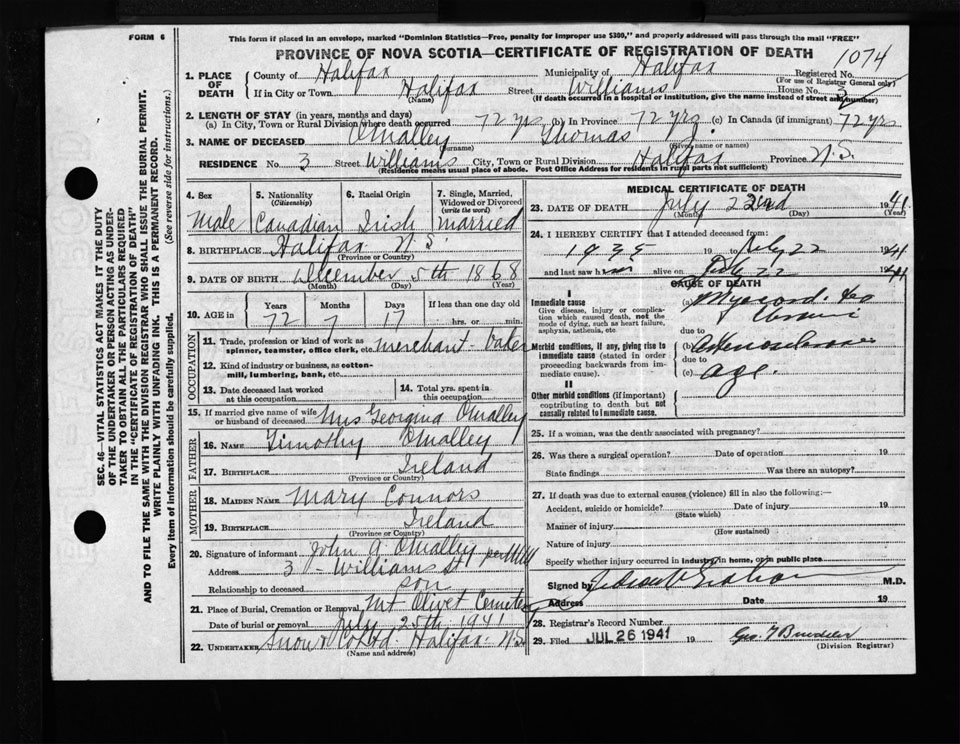 FORM 6
This form if placed in an envelope, marked "Dominion Statistics—Free, penalty for improper use $300," and properly addressed will pass through the mail "FREE"
PROVINCE OF NOVA SCOTIA—CERTIFICATE OF REGISTRATION OF DEATH
1074
1. PLACE OF DEATH County of Halifax Municipality of Halifax Registered No. (For use of Registrar General only)
If in City or Town Halifax (Name) Street Williams House No. 3
(If death occurred in a hospital or institution, give the name instead of street and number)
2. LENGTH OF STAY (in years, months and days)
(a) In City, Town or Rural Division where death occurred 72 yrs (b) In Province 72 yrs. (c) In Canada (if immigrant) 72 yrs
3. NAME OF DECEASED O'Malley (Surname) Thomas J. (Given name or names)
RESIDENCE No. 3 Street Williams City, Town or Rural Division Halifax Province N.S.
(Residence means usual place of abode. Post Office Address for residents in rural parts not sufficient)
4. Sex Male
5. Nationality (Citizenship) Canadian
6. Racial Origin Irish
7. Single, Married, Widowed or Divorced (write the word) married
8. BIRTHPLACE Halifax N.S. (Province or Country)
9. DATE OF BIRTH December 5th 1868 (Month) (Day) (Year)
10. AGE in Years 72 Months 7 Days 17 If less than one day old hrs. or min.
OCCUPATION
11. Trade, profession or kind of work as spinner, teamster, office clerk, etc. merchant
12. Kind of industry or business, as cotton-mill, lumbering, bank, etc.
13. Date deceased last worked at this occupation
14. Total yrs. spent in this occupation
15. If married give name of wife or husband of deceased Mrs Georgina O'Malley
FATHER
16. NAME Timothy O'Malley
17. BIRTHPLACE Ireland (Province or Country)
MOTHER
18. MAIDEN NAME Mary Connors
19. BIRTHPLACE Ireland (Province or Country)
20. Signature of informant John A O'Malley per
Address 3 - Williams St
Relationship to deceased son
21. Place of Burial, Cremation or Removal Mt Olivet Cemetery
Date of burial or removal July 25th 1941
22. UNDERTAKER Snow & Co Ltd. Halifax N.S. (Name and address)
MEDICAL CERTIFICATE OF DEATH
23. DATE OF DEATH July 22nd 1941 (Month) (Day) (Year)
24. I HEREBY CERTIFY that I attended deceased from:
1935 19 to July 22 1941
and last saw him alive on July 22 1941
CAUSE OF DEATH
I
Immediate cause
Give disease, injury or complication which caused death, not the mode of dying, such as heart failure, asphyxia, asthenia, etc
(a) Myocard.
due to
Morbid conditions, if any, giving rise to immediate cause (stated in order proceeding backwards from immediate cause).
(b)
due to
(c) age.
II
Other morbid conditions (if important) contributing to death but not causally related to immediate cause.
25. If a woman, was the death associated with pregnancy?
26. Was there a surgical operation? Date of operation 19
State findings Was there an autopsy?
27. If death was due to external causes (violence) fill in also the following:—
Accident, suicide or homicide? Date of injury 19
(State which)
Manner of injury
(How sustained)
Nature of injury
Specify whether injury occurred in industry, in home, or in public place
Signed by M.D.
Address Date 19
28. Registrar's Record Number
29. Filed JUL 26 1941 19 Geo. (Division Registrar)
SEC. 46—VITAL STATISTICS ACT MAKES IT THE DUTY
OF THE UNDERTAKER OR PERSON ACTING AS UNDER-
TAKER TO OBTAIN ALL THE PARTICULARS REQUIRED
IN THE "CERTIFICATE OF REGISTRATION OF DEATH"
AND TO FILE THE SAME WITH THE DIVISION REGISTRAR WHO SHALL ISSUE THE BURIAL PERMIT.
WRITE PLAINLY WITH UNFADING INK. THIS IS A PERMANENT RECORD.
Every item of information should be carefully supplied. (See reverse side for instructions.)